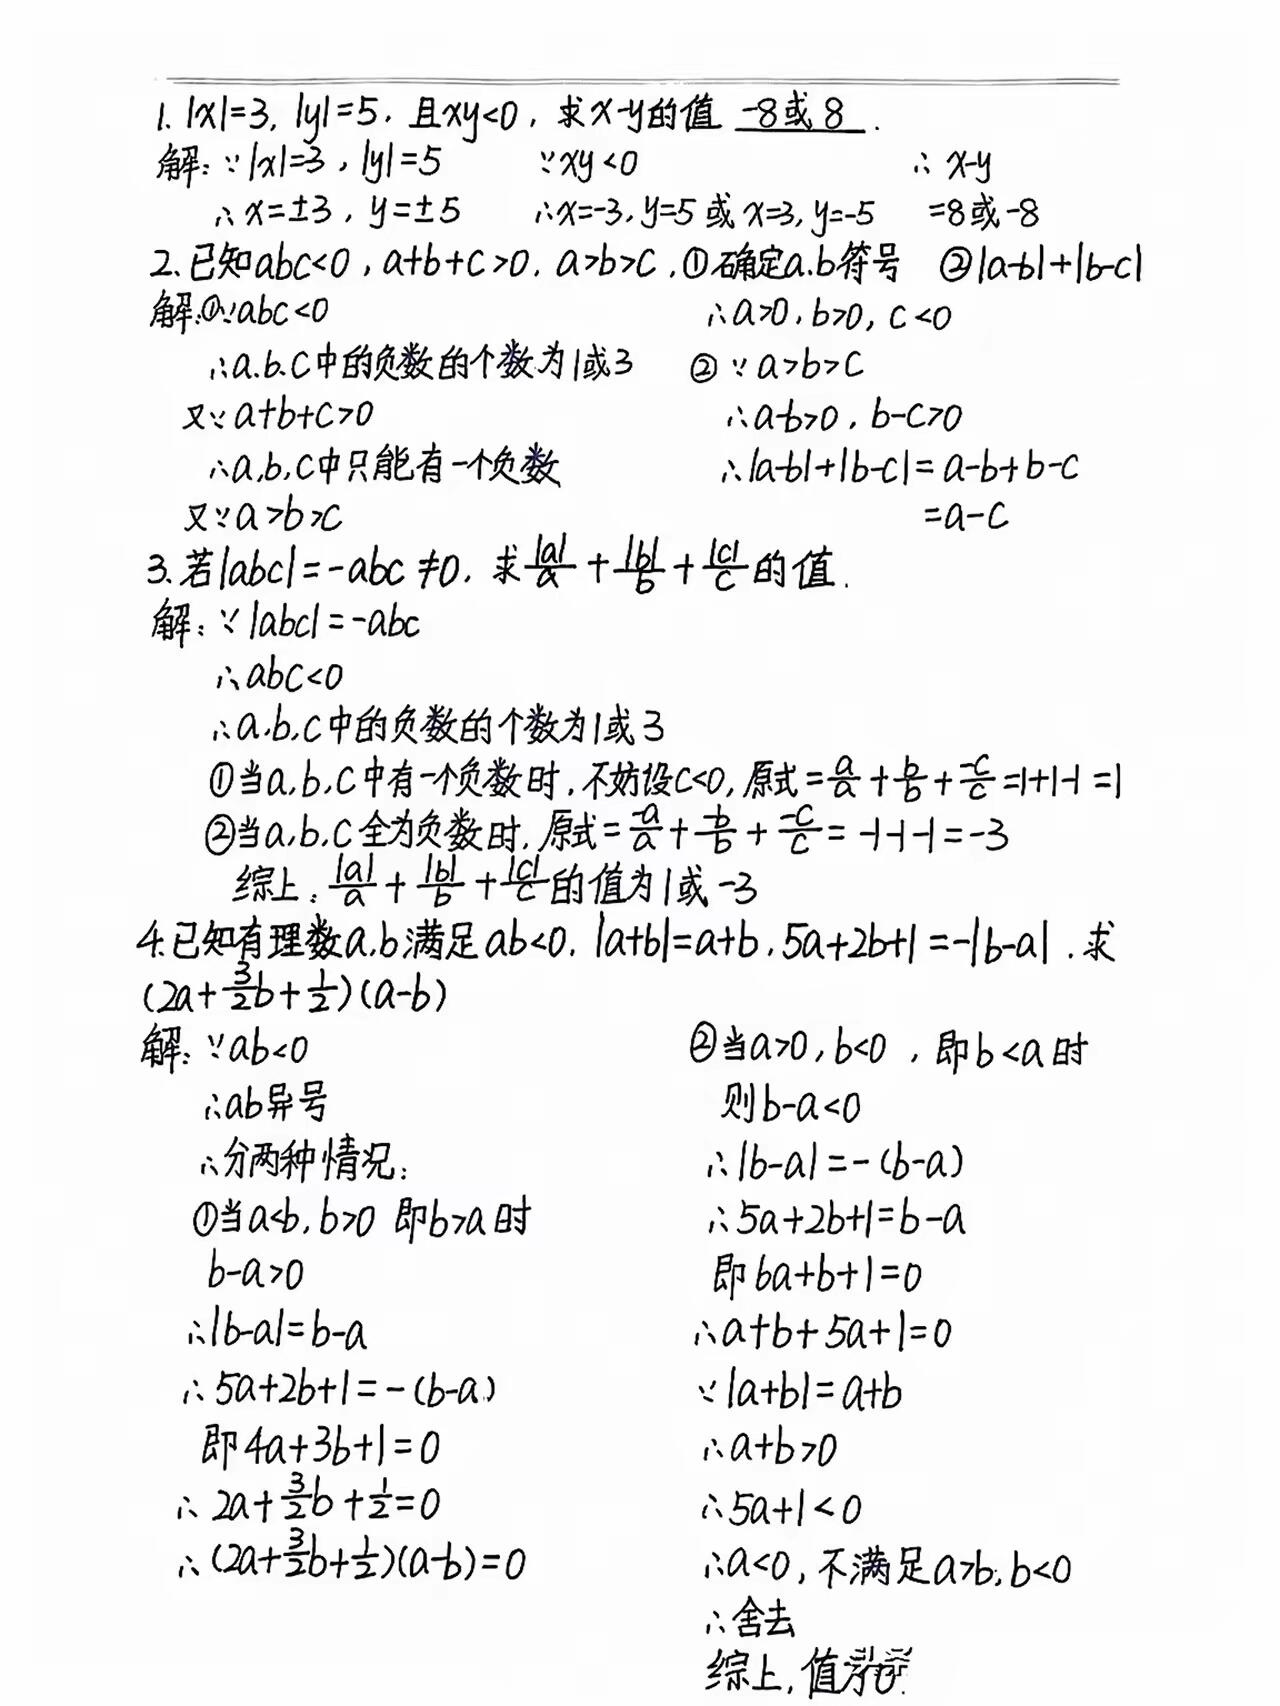 1. |x|=3, |y|=5, 且xy<0, 求x-y的值 -8或8.
解: ∵|x|=3, |y|=5 ∵xy<0 ∴ x-y
∴x=±3, y=±5 ∴x=-3, y=5 或 x=3, y=-5 =8或-8
2. 已知abc<0, a+b+c>0, a>b>c, ①确定a.b符号 ②|a-b|+|b-c|
解:①∵abc<0
∴a.b.c中的负数的个数为1或3
又∵a+b+c>0
∴a,b,c中只能有一个负数
又∵a>b>c
∴a>0, b>0, c<0
② ∵a>b>c
∴a-b>0, b-c>0
∴|a-b|+|b-c|=a-b+b-c
=a-c
3. 若|abc|=-abc≠0, 求|a|/a+|b|/b+|c|/c的值.
解: ∵|abc|=-abc
∴abc<0
∴a,b,c中的负数的个数为1或3
①当a,b,c中有一个负数时, 不妨设c<0, 原式=a/a+b/b+-c/c=1+1-1=1
②当a,b,c全为负数时, 原式=-a/a+-b/b+-c/c=-1-1-1=-3
综上: |a|/a+|b|/b+|c|/c的值为1或-3
4. 已知有理数a,b满足ab<0, |a+b|=a+b, 5a+2b+1=-|b-a|. 求
(2a+3/2b+1/2)(a-b)
解: ∵ab<0
∴ab异号
∴分两种情况:
①当a<b, b>0 即b>a时
b-a>0
∴|b-a|=b-a
∴5a+2b+1=-(b-a)
即4a+3b+1=0
∴2a+3/2b+1/2=0
∴(2a+3/2b+1/2)(a-b)=0
②当a>0, b<0, 即b<a时
则b-a<0
∴|b-a|=-(b-a)
∴5a+2b+1=b-a
即6a+b+1=0
∴a+b+5a+1=0
∵|a+b|=a+b
∴a+b>0
∴5a+1<0
∴a<0, 不满足a>b, b<0
∴舍去
综上, 值为0.